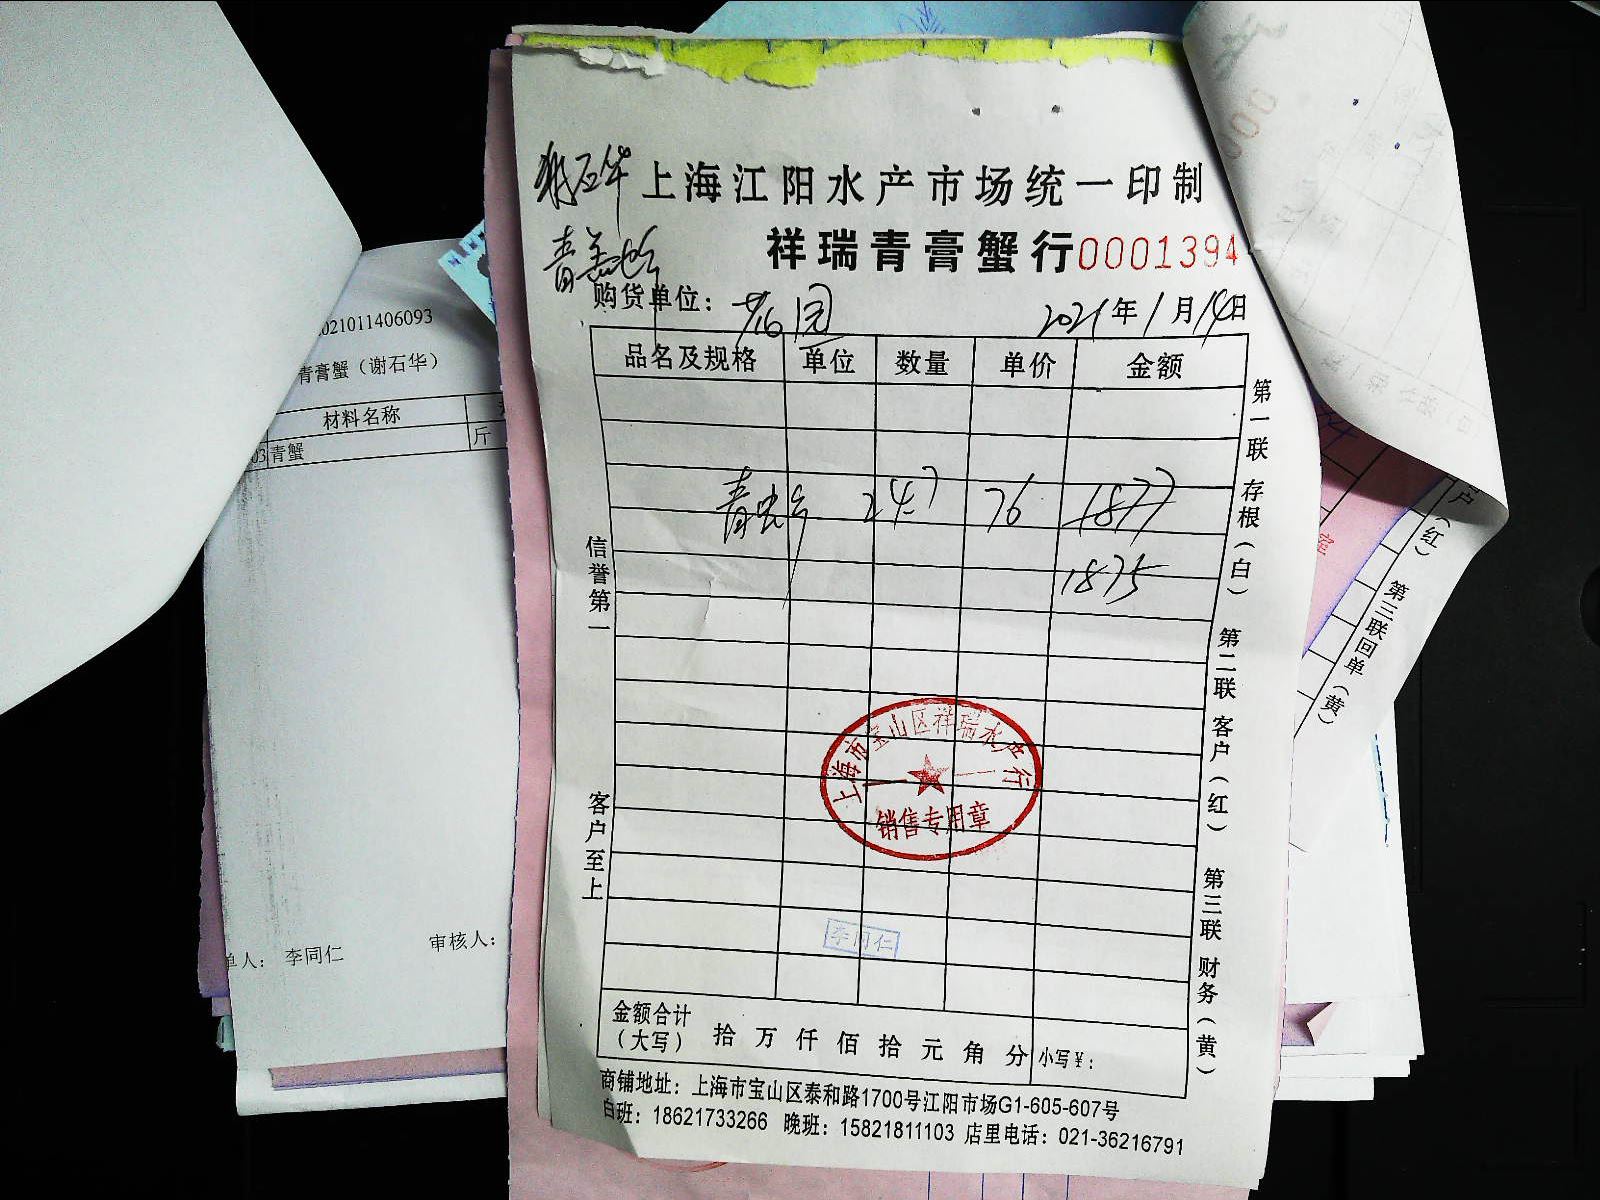 谢石华
上海江阳水产市场统一印制
青膏蟹
祥瑞青膏蟹行0001394
购货单位：花园
2021年1月14日
品名及规格 单位 数量 单价 金额
青蟹 24.7 76 1877
1875
信誉第一
客户至上
第一联 存根（白） 第二联 客户（红） 第三联 财务（黄）
上海市宝山区祥瑞水产行
销售专用章
李同仁
金额合计（大写） 拾 万 仟 佰 拾 元 角 分 小写￥：
商铺地址：上海市宝山区泰和路1700号江阳市场G1-605-607号
白班：18621733266 晚班：15821811103 店里电话：021-36216791
021011406093
青膏蟹（谢石华）
材料名称
03 青蟹 斤
单人：李同仁 审核人：
户（红） 第三联回单（黄）